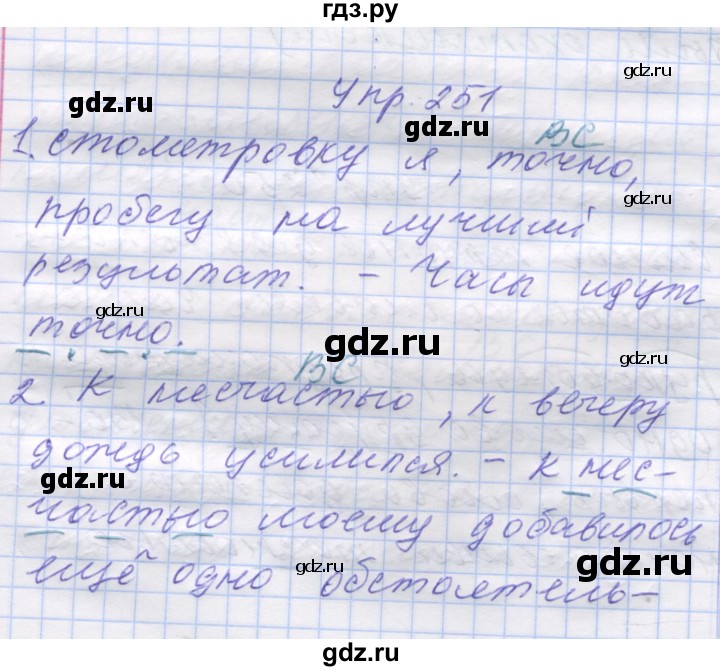 гдз.ру
gdz.ru
Упр. 251
gdz.ru
gdz.ru
ВС
1. Стометровку я, точно,
gdz.ru
пробегу на лучший
результат. - Часы идут
gdz.ru
точно.
gdz.ru
gdz.ru
ВС
2. К несчастью, к вечеру
дождь усилился. - К нес-
gdz.ru
gdz.ru
частью моему добавилось
gdz.ru
gdz.ru
ещё одно обстоятель-